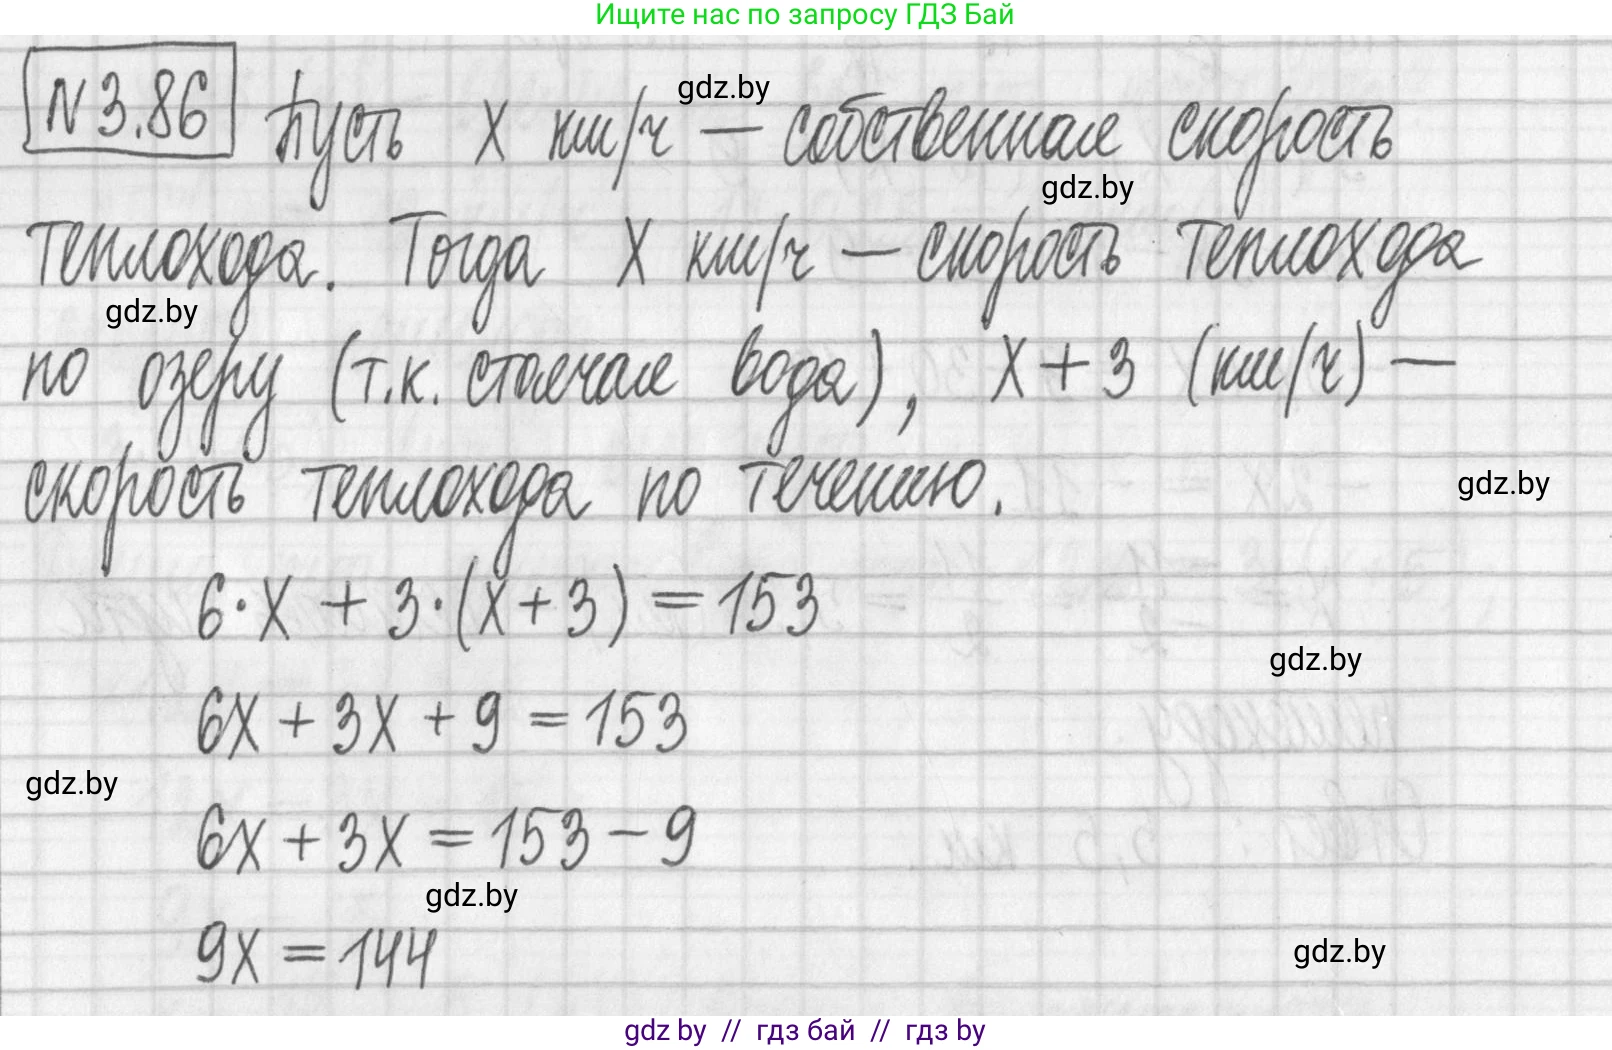 Ищите нас по запросу ГДЗ Бай
N 3.86 Пусть x км/ч — собственная скорость
gdz.by
gdz.by
теплохода. Тогда x км/ч — скорость теплохода
gdz.by
по озеру (т.к. стоячая вода), x + 3 (км/ч) —
скорость теплохода по течению.
gdz.by
6·x + 3·(x+3) = 153
gdz.by
6x + 3x + 9 = 153
gdz.by
6x + 3x = 153 - 9
gdz.by
9x = 144
gdz.by
gdz by // гдз бай // гдз by